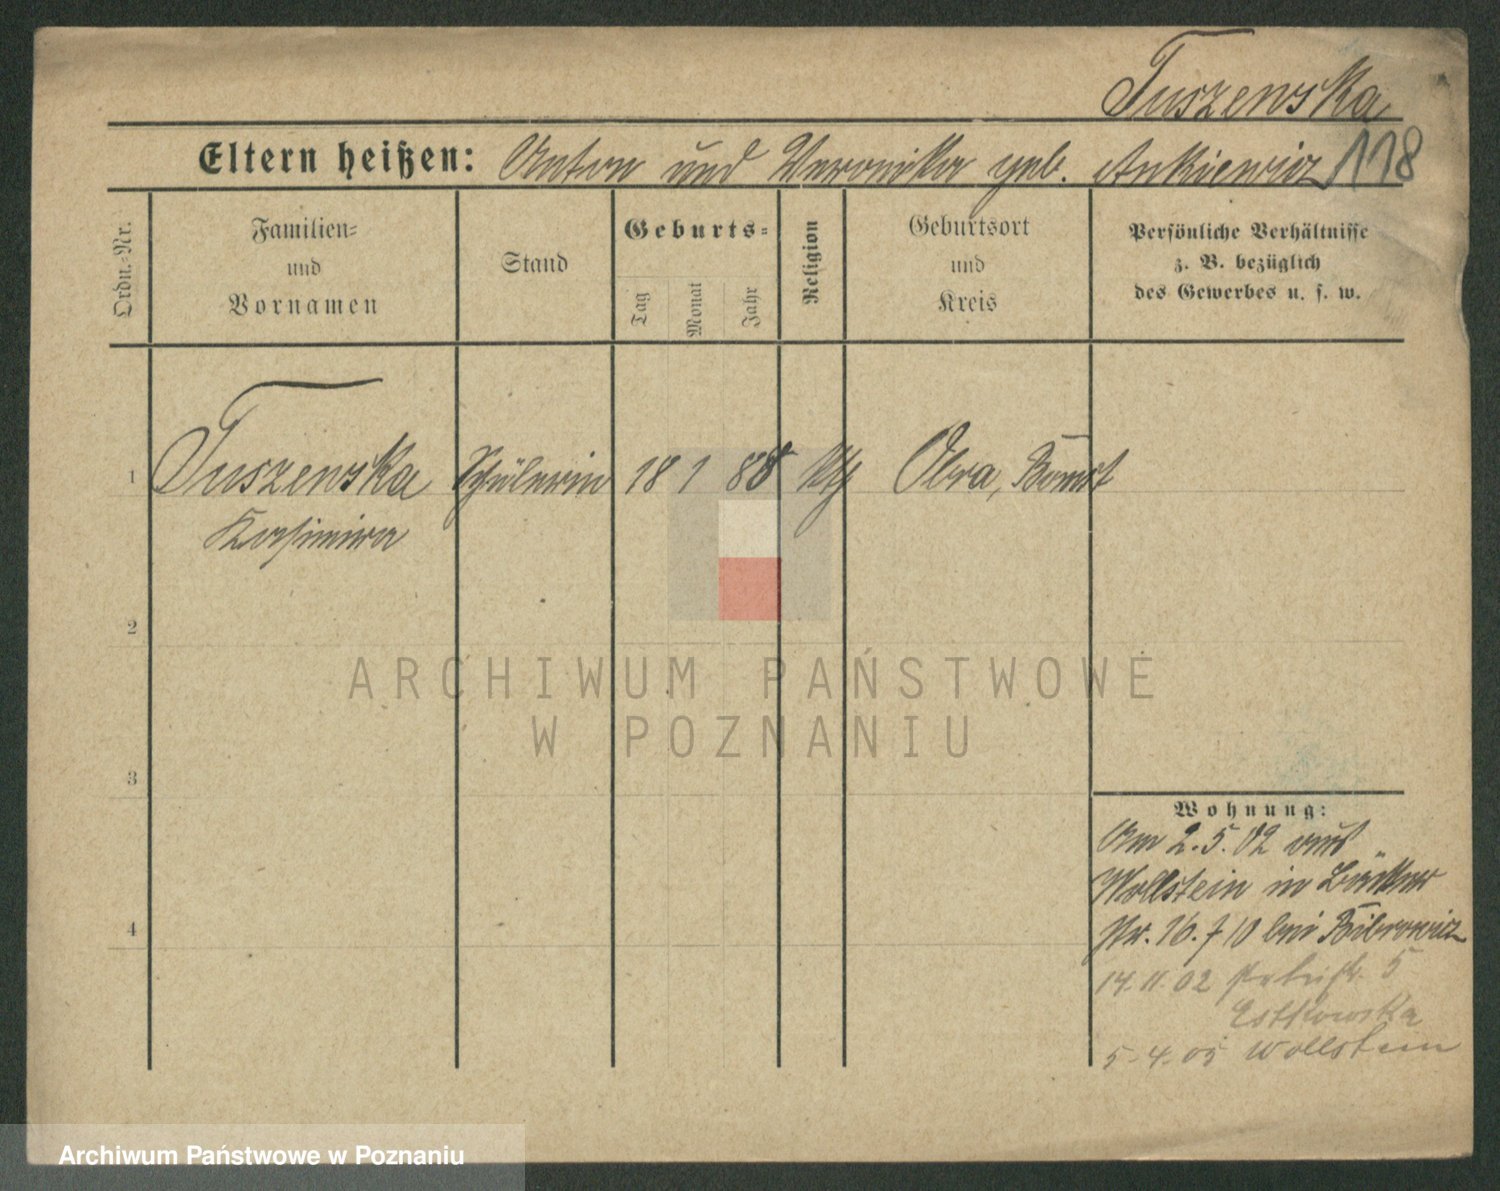 Tuszewska
Eltern heißen: Anton und Veronika geb. Ankiewicz 118
Ordn.-Nr.
Familien-
und
Vornamen
Stand
Geburts-
Tag
Monat
Jahr
Religion
Geburtsort
und
Kreis
Persönliche Verhältnisse
z. B. bezüglich
des Gewerbes u. s. w.
1 Tuszewska Schülerin 18 1 88 kth Obra, Bomst
Kasimira
2
3
4
Wohnung:
Am 2.5.02 aus
Wollstein in Bäcker
Str. 16. f 10 bei Bibrowicz
14.11.02 5
Estkowska
5-4-05 Wollstein
ARCHIWUM PAŃSTWOWE
W POZNANIU
Archiwum Państwowe w Poznaniu